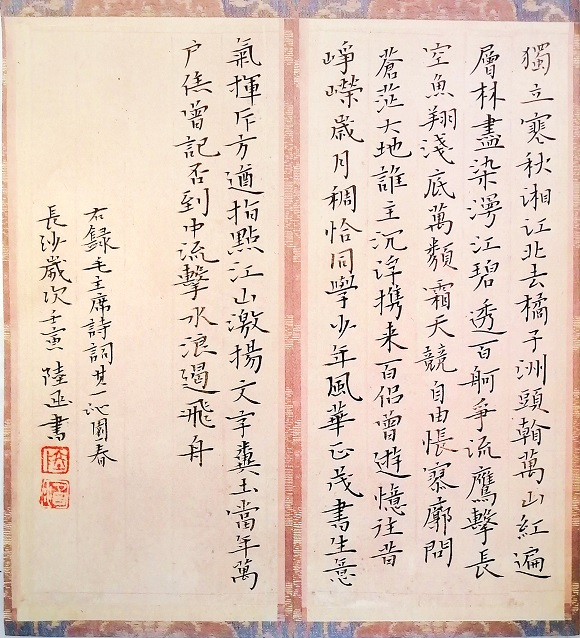 獨立寒秋湘江北去橘子洲頭翰萬山紅遍
層林盡染漫江碧透百舸爭流鷹擊長
空魚翔淺底萬類霜天競自由悵寥廓問
蒼茫大地誰主沉浮携来百侶曾遊憶往昔
崢嶸歲月稠恰同學少年風華正茂書生意
氣揮斥方遒指點江山激揚文字糞土當年萬
户侯曾記否到中流擊水浪遏飛舟
右錄毛主席詩詞其一沁園春
長沙歲次壬寅陸書